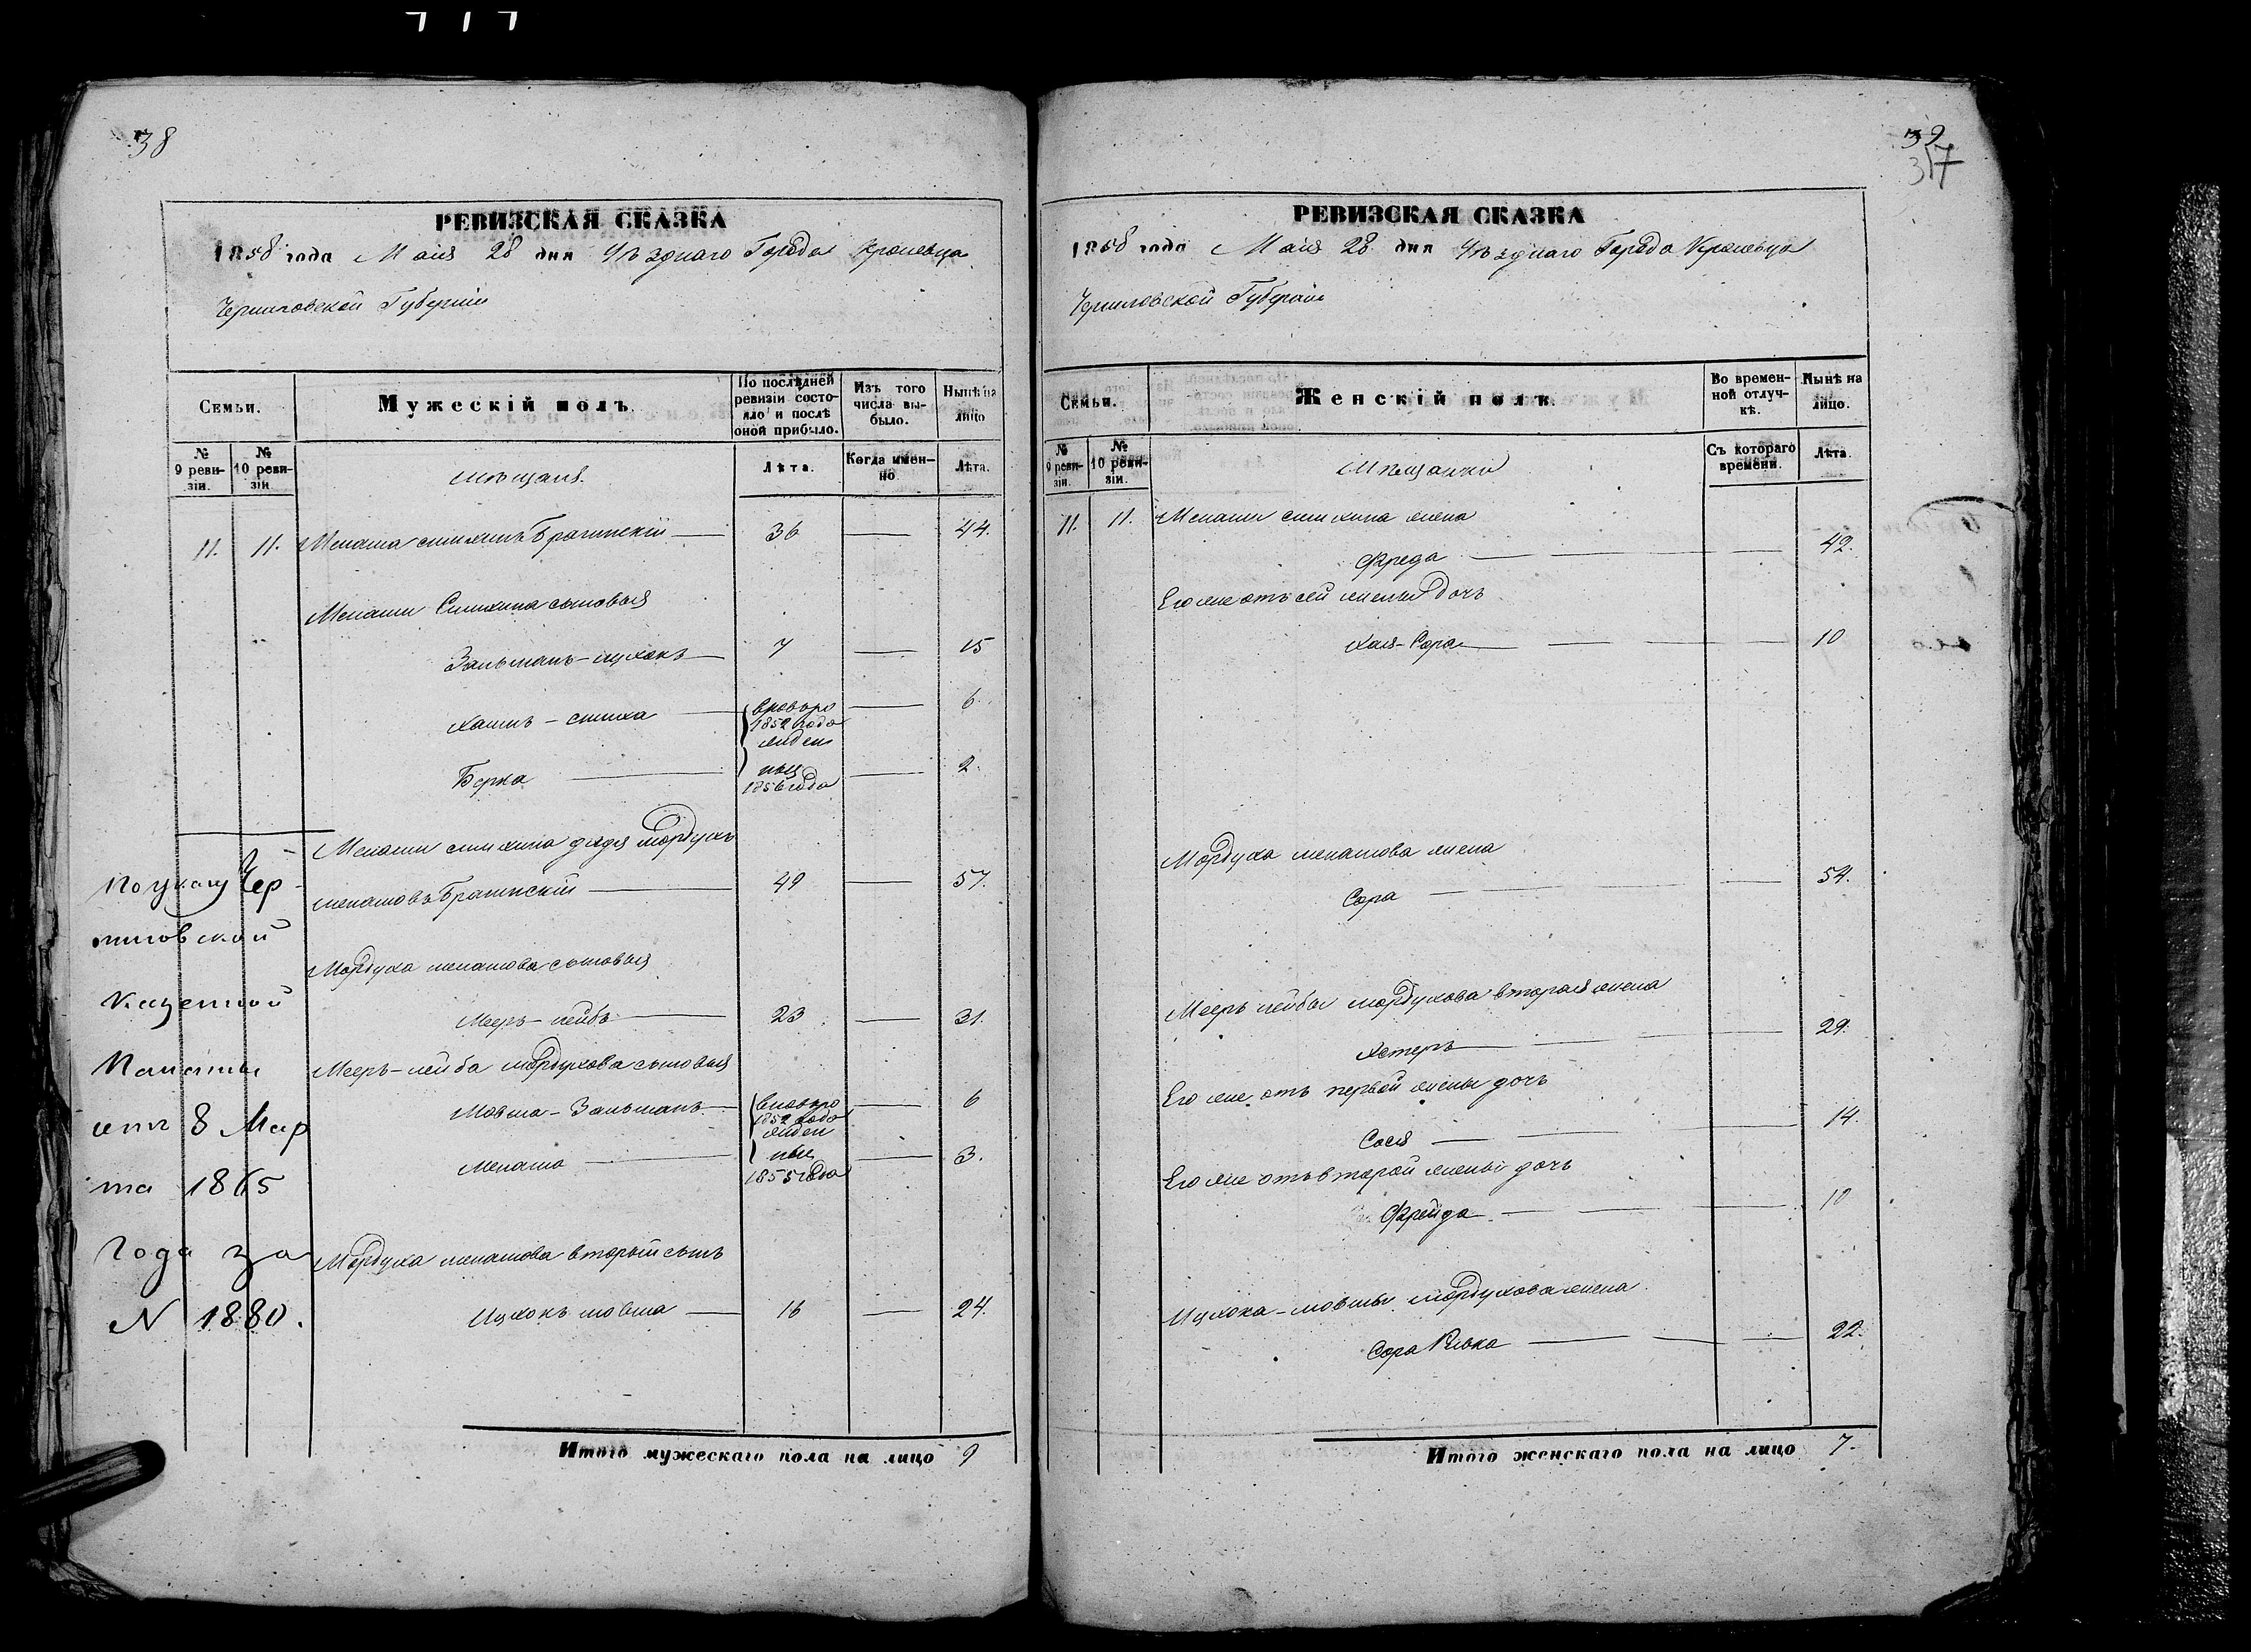 38
РЕВИЗСКАЯ СКАЗКА
1858 года Маія 28 дня Уѣзднаго Города Кролевца
Черниговской Губерніи
Семьи.
Мужескій полъ.
По послѣдней ревизіи состояло и послѣ оной прибыло.
Изъ того числа выбыло.
Нынѣ на лицо
№ 9 ревизіи.
№ 10 ревизіи
мѣщане.
Лѣта.
Когда именно
Лѣта.
11. 11. Менаша Симхинъ Брагинскій 36 44.
Менаши Симхина сыновья
Зальманъ-Ицхокъ 7 15
Хаимъ-Симха 6.
1852 года
Берка 2.
1856 года
Менаши Симхина дядя Мордухъ
Менашовъ Брагинскій 49 57.
Мордуха Менашова сыновья
Мееръ-Лейба 23 31.
Мееръ-Лейба Мордухова сыновья
Мовша-Зальманъ 6
1852 года
Менаша 3.
1855 года
Мордуха Менашова вторый сынъ
Ицхокъ Мовша 16 24.
По указу Чер-
ниговской
Казенной
Палаты
отъ 8 Мар
та 1865
Года за
N 1880.
Итого мужескаго пола на лицо 9
39
37
РЕВИЗСКАЯ СКАЗКА
1858 года Маія 28 дня Уѣзднаго Города Кролевца
Черниговской Губерніи
Семьи.
Женскій полъ.
Во временной отлучкѣ.
Нынѣ на лицо.
№ 9 ревизіи.
№ 10 ревизіи.
Мѣщанки
Съ котораго времени.
Лѣта.
11. 11. Менаши Симхина жена
Фреда 42.
Его же отъ сей жены дочь
Хая-Сора 10
Мордуха Менашова жена
Сора 54.
Мееръ Лейбы Мордухова вторая жена
Хетеръ 29.
Его же отъ первой жены дочь
Сося 14.
Его же отъ второй жены дочь
Фрейда 10
Ицхока-Мовши Мордухова жена
Сора Ривка 22.
Итого женскаго пола на лицо 7.